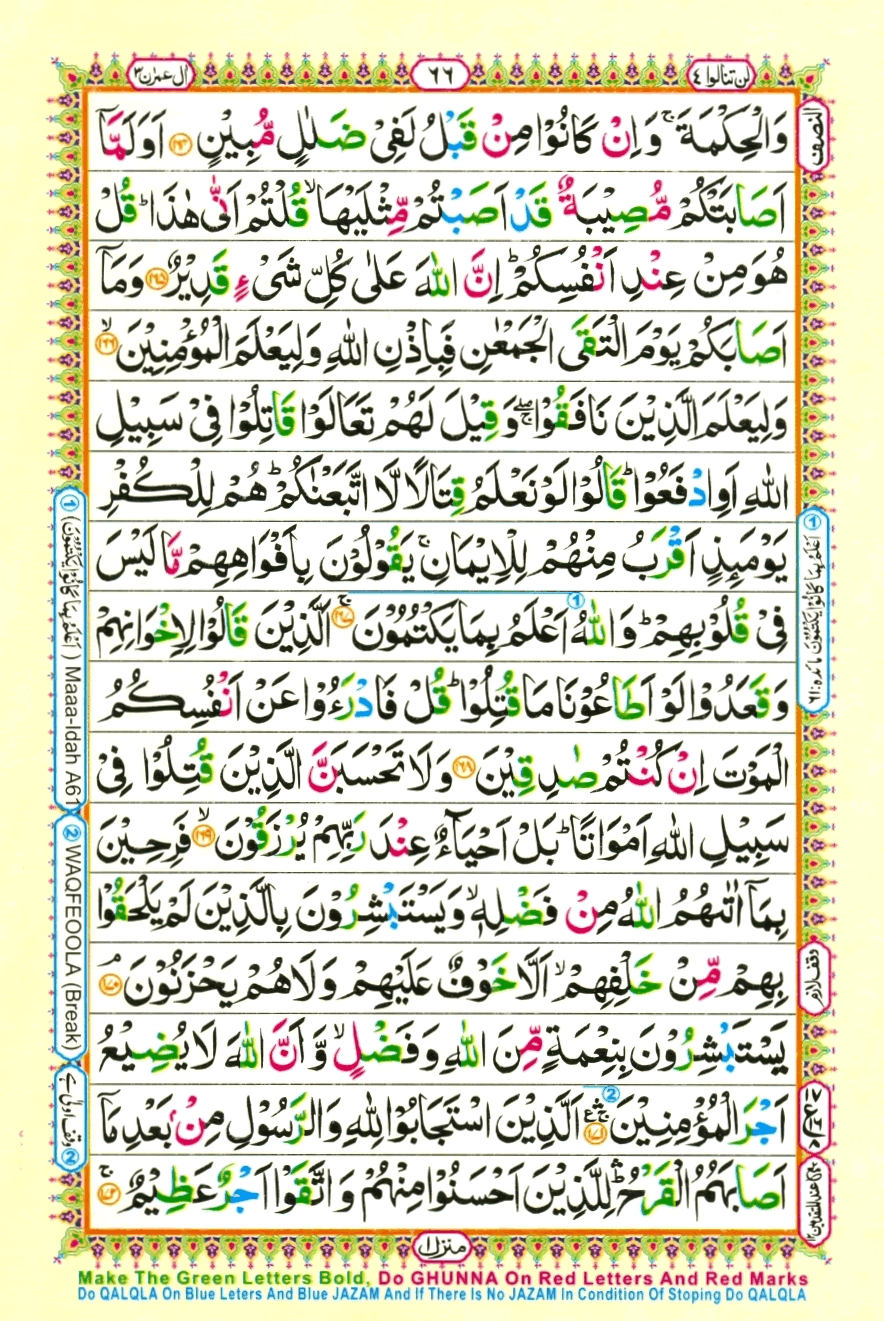 لن تنالوا ٤
٦٦
اٰل عمرٰن ٣
وَالْحِكْمَةَ ۚ وَاِنْ كَانُوْا مِنْ قَبْلُ لَفِىْ ضَلٰلٍ مُّبِيْنٍ ۝۱۶۴ اَوَلَمَّاۤ
اَصَابَتْكُمْ مُّصِيْبَةٌ قَدْ اَصَبْتُمْ مِّثْلَيْهَا ۙ قُلْتُمْ اَنّٰى هٰذَا ؕ قُلْ
هُوَ مِنْ عِنْدِ اَنْفُسِكُمْ ؕ اِنَّ اللّٰهَ عَلٰى كُلِّ شَىْءٍ قَدِيْرٌ ۝۱۶۵ وَمَاۤ
اَصَابَكُمْ يَوْمَ الْتَقَى الْجَمْعٰنِ فَبِاِذْنِ اللّٰهِ وَلِيَعْلَمَ الْمُؤْمِنِيْنَ ۙ‏ ۝۱۶۶
وَلِيَعْلَمَ الَّذِيْنَ نَافَقُوْا ۖۚ وَقِيْلَ لَهُمْ تَعَالَوْا قَاتِلُوْا فِىْ سَبِيْلِ
اللّٰهِ اَوِ ادْفَعُوْا ؕ قَالُوْا لَوْ نَعْلَمُ قِتَالًا لَّا اتَّبَعْنٰكُمْ ؕ هُمْ لِلْكُفْرِ
يَوْمَئِذٍ اَقْرَبُ مِنْهُمْ لِلْاِيْمَانِ ۚ يَقُوْلُوْنَ بِاَفْوَاهِهِمْ مَّا لَيْسَ
فِىْ قُلُوْبِهِمْ ؕ وَاللّٰهُ اَعْلَمُ بِمَا يَكْتُمُوْنَ ۚ ۝۱۶۷ اَلَّذِيْنَ قَالُوْا لِاِخْوَانِهِمْ
وَقَعَدُوْا لَوْ اَطَاعُوْنَا مَا قُتِلُوْا ؕ قُلْ فَادْرَءُوْا عَنْ اَنْفُسِكُمُ
الْمَوْتَ اِنْ كُنْتُمْ صٰدِقِيْنَ ۝۱۶۸ وَلَا تَحْسَبَنَّ الَّذِيْنَ قُتِلُوْا فِىْ
سَبِيْلِ اللّٰهِ اَمْوَاتًا ؕ بَلْ اَحْيَآءٌ عِنْدَ رَبِّهِمْ يُرْزَقُوْنَ ۙ ۝۱۶۹ فَرِحِيْنَ
بِمَاۤ اٰتٰىهُمُ اللّٰهُ مِنْ فَضْلِهٖ ۙ وَيَسْتَبْشِرُوْنَ بِالَّذِيْنَ لَمْ يَلْحَقُوْا
بِهِمْ مِّنْ خَلْفِهِمْ ۙ اَلَّا خَوْفٌ عَلَيْهِمْ وَلَا هُمْ يَحْزَنُوْنَ ۘ ۝۱۷۰
يَسْتَبْشِرُوْنَ بِنِعْمَةٍ مِّنَ اللّٰهِ وَفَضْلٍ ۙ وَّاَنَّ اللّٰهَ لَا يُضِيْعُ
اَجْرَ الْمُؤْمِنِيْنَ ۝۱۷۱ اَلَّذِيْنَ اسْتَجَابُوْا لِلّٰهِ وَالرَّسُوْلِ مِنْۢ بَعْدِ مَاۤ
اَصَابَهُمُ الْقَرْحُ ۛؕ لِلَّذِيْنَ اَحْسَنُوْا مِنْهُمْ وَاتَّقَوْا اَجْرٌ عَظِيْمٌ ۚ ۝۱۷۲
النصف
① اَعْلَمُ بِمَا كَانُوْا يَكْتُمُوْنَ مائدہ: ٦١
وقف لازم
① (اَعْلَمُ بِمَا كَانُوْا يَكْتُمُوْنَ) Maaa-Idah A61
② WAQFEOOLA (Break)
② وقف اولٰی ہے
منزل ١
Make The Green Letters Bold, Do GHUNNA On Red Letters And Red Marks
Do QALQLA On Blue Leters And Blue JAZAM And If There Is No JAZAM In Condition Of Stoping Do QALQLA